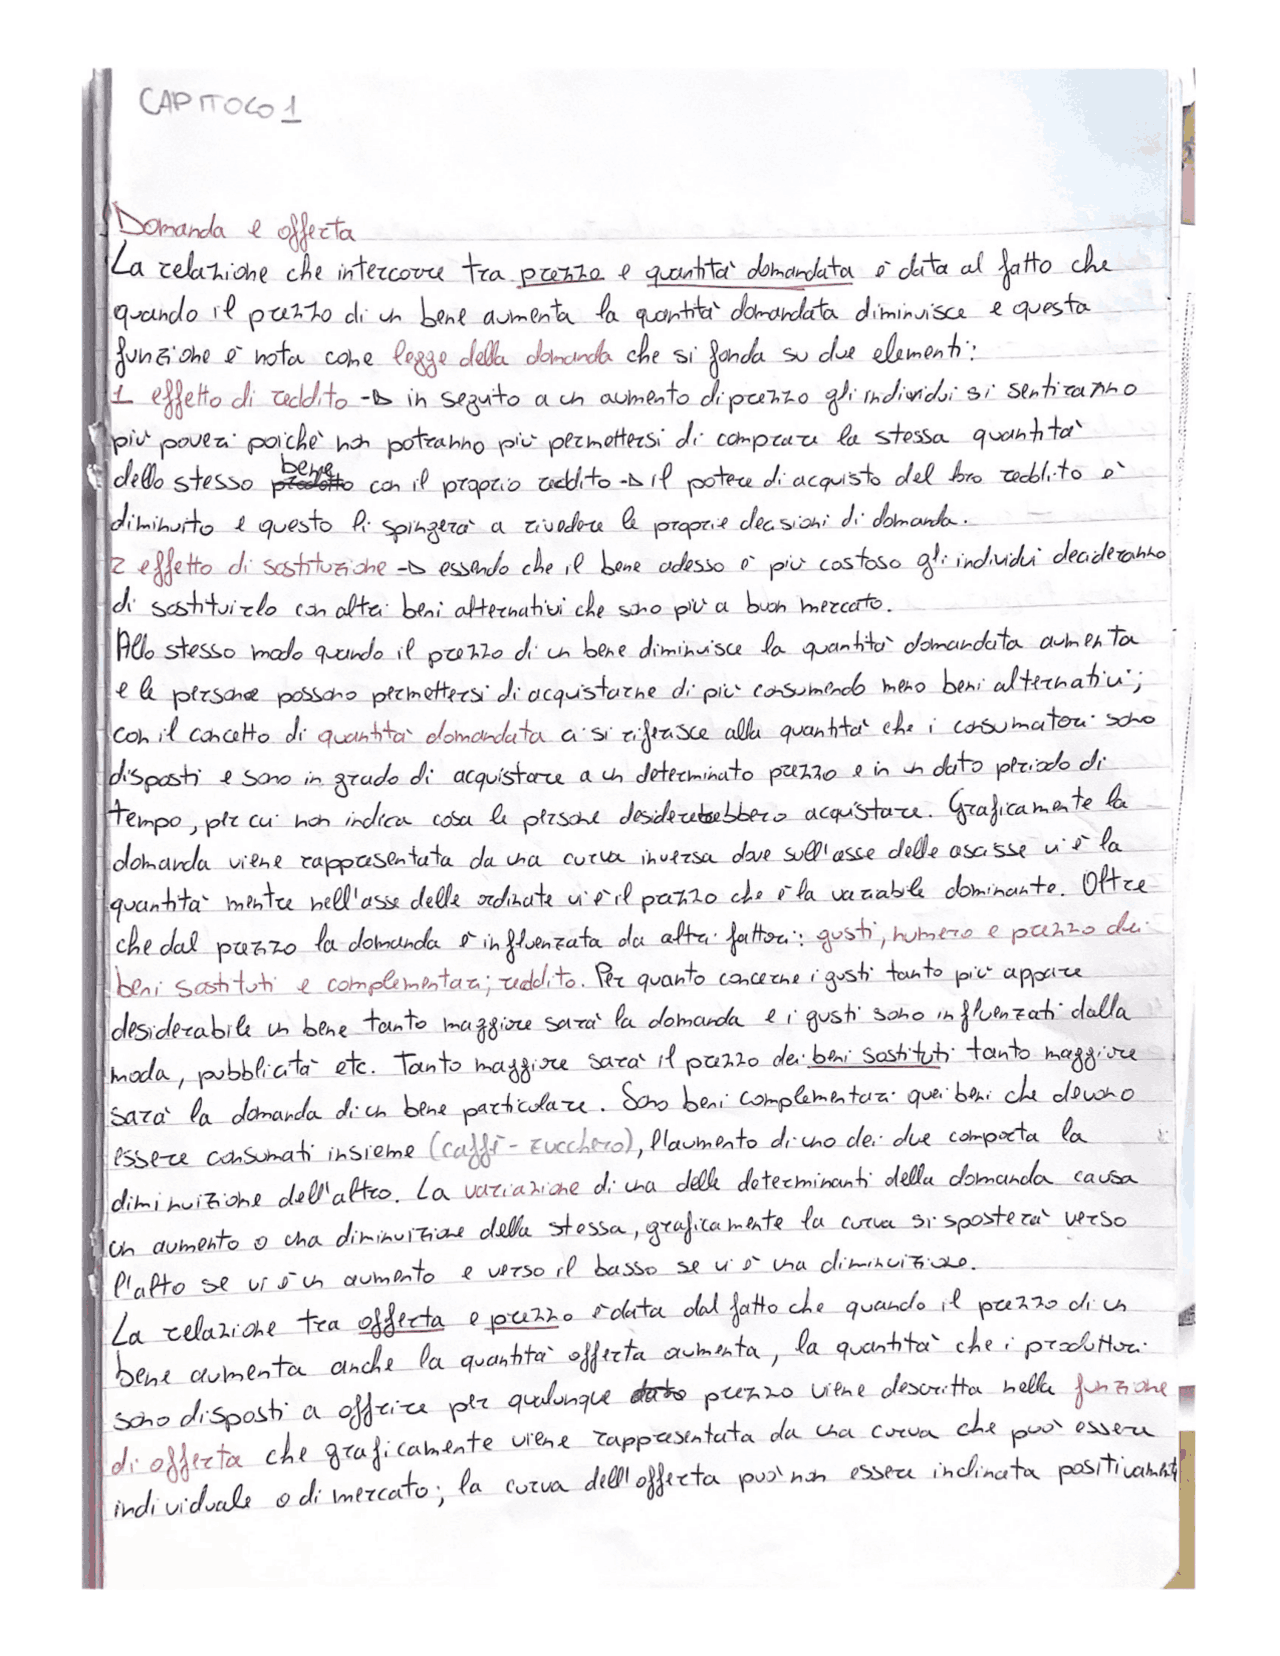 CAPITOLO 1
Domanda e offerta
La relazione che intercorre tra prezzo e quantità domandata è data al fatto che
quando il prezzo di un bene aumenta la quantità domandata diminuisce e questa
funzione è nota come legge della domanda che si fonda su due elementi:
1 effetto di reddito -> in seguito a un aumento di prezzo gli individui si sentiranno
più poveri poichè non potranno più permettersi di comprare la stessa quantità
dello stesso bene con il proprio reddito -> il potere di acquisto del loro reddito è
diminuito e questo li spingerà a rivedere le proprie decisioni di domanda.
2 effetto di sostituzione -> essendo che il bene adesso è più costoso gli individui decideranno
di sostituirlo con altri beni alternativi che sono più a buon mercato.
Allo stesso modo quando il prezzo di un bene diminuisce la quantità domandata aumenta
e le persone possono permettersi di acquistarne di più consumendo meno beni alternativi;
con il concetto di quantità domandata ci si riferisce alla quantità che i consumatori sono
disposti e sono in grado di acquistare a un determinato prezzo e in un dato periodo di
tempo, per cui non indica cosa le persone desidererebbero acquistare. Graficamente la
domanda viene rappresentata da una curva inversa dove sull'asse delle ascisse vi è la
quantità mentre nell'asse delle ordinate vi è il prezzo che è la variabile dominante. Oltre
che dal prezzo la domanda è influenzata da altri fattori: gusti, numero e prezzo dei
beni sostituti e complementari; reddito. Per quanto concerne i gusti tanto più appare
desiderabile un bene tanto maggiore sarà la domanda e i gusti sono influenzati dalla
moda, pubblicità etc. Tanto maggiore sarà il prezzo dei beni sostituti tanto maggiore
sarà la domanda di un bene particolare. Sono beni complementari quei beni che devono
essere consumati insieme (caffè - zucchero), l'aumento di uno dei due comporta la
diminuizione dell'altro. La variazione di una delle determinanti della domanda causa
un aumento o una diminuizione della stessa, graficamente la curva si sposterà verso
l'alto se vi è un aumento e verso il basso se vi è una diminuizione.
La relazione tra offerta e prezzo è data dal fatto che quando il prezzo di un
bene aumenta anche la quantità offerta aumenta, la quantità che i produttori
sono disposti a offrire per qualunque dato prezzo viene descritta nella funzione
di offerta che graficamente viene rappresentata da una curva che può essere
individuale o di mercato; la curva dell'offerta può non essere inclinata positivamente